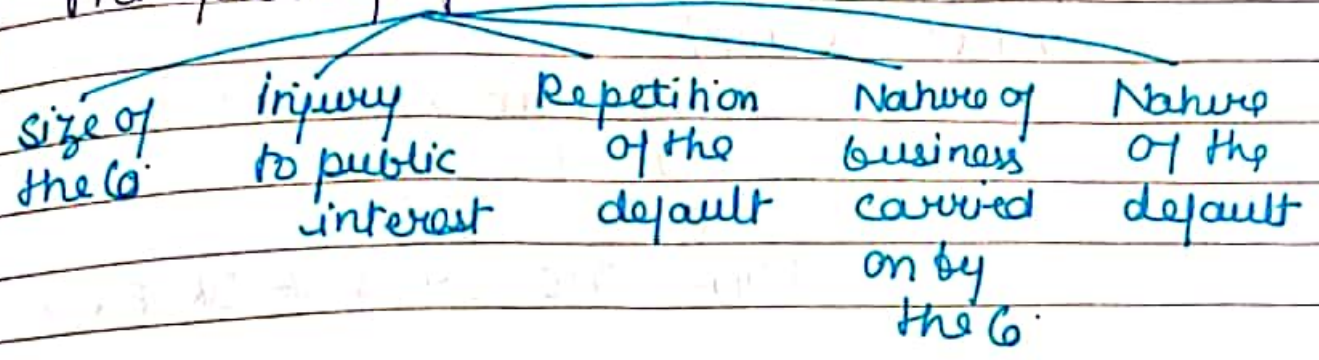 size of
the Co.
injury
to public
interest
Repetition
of the
default
Nature of
business
carried
on by
the Co.
Nature
of the
default